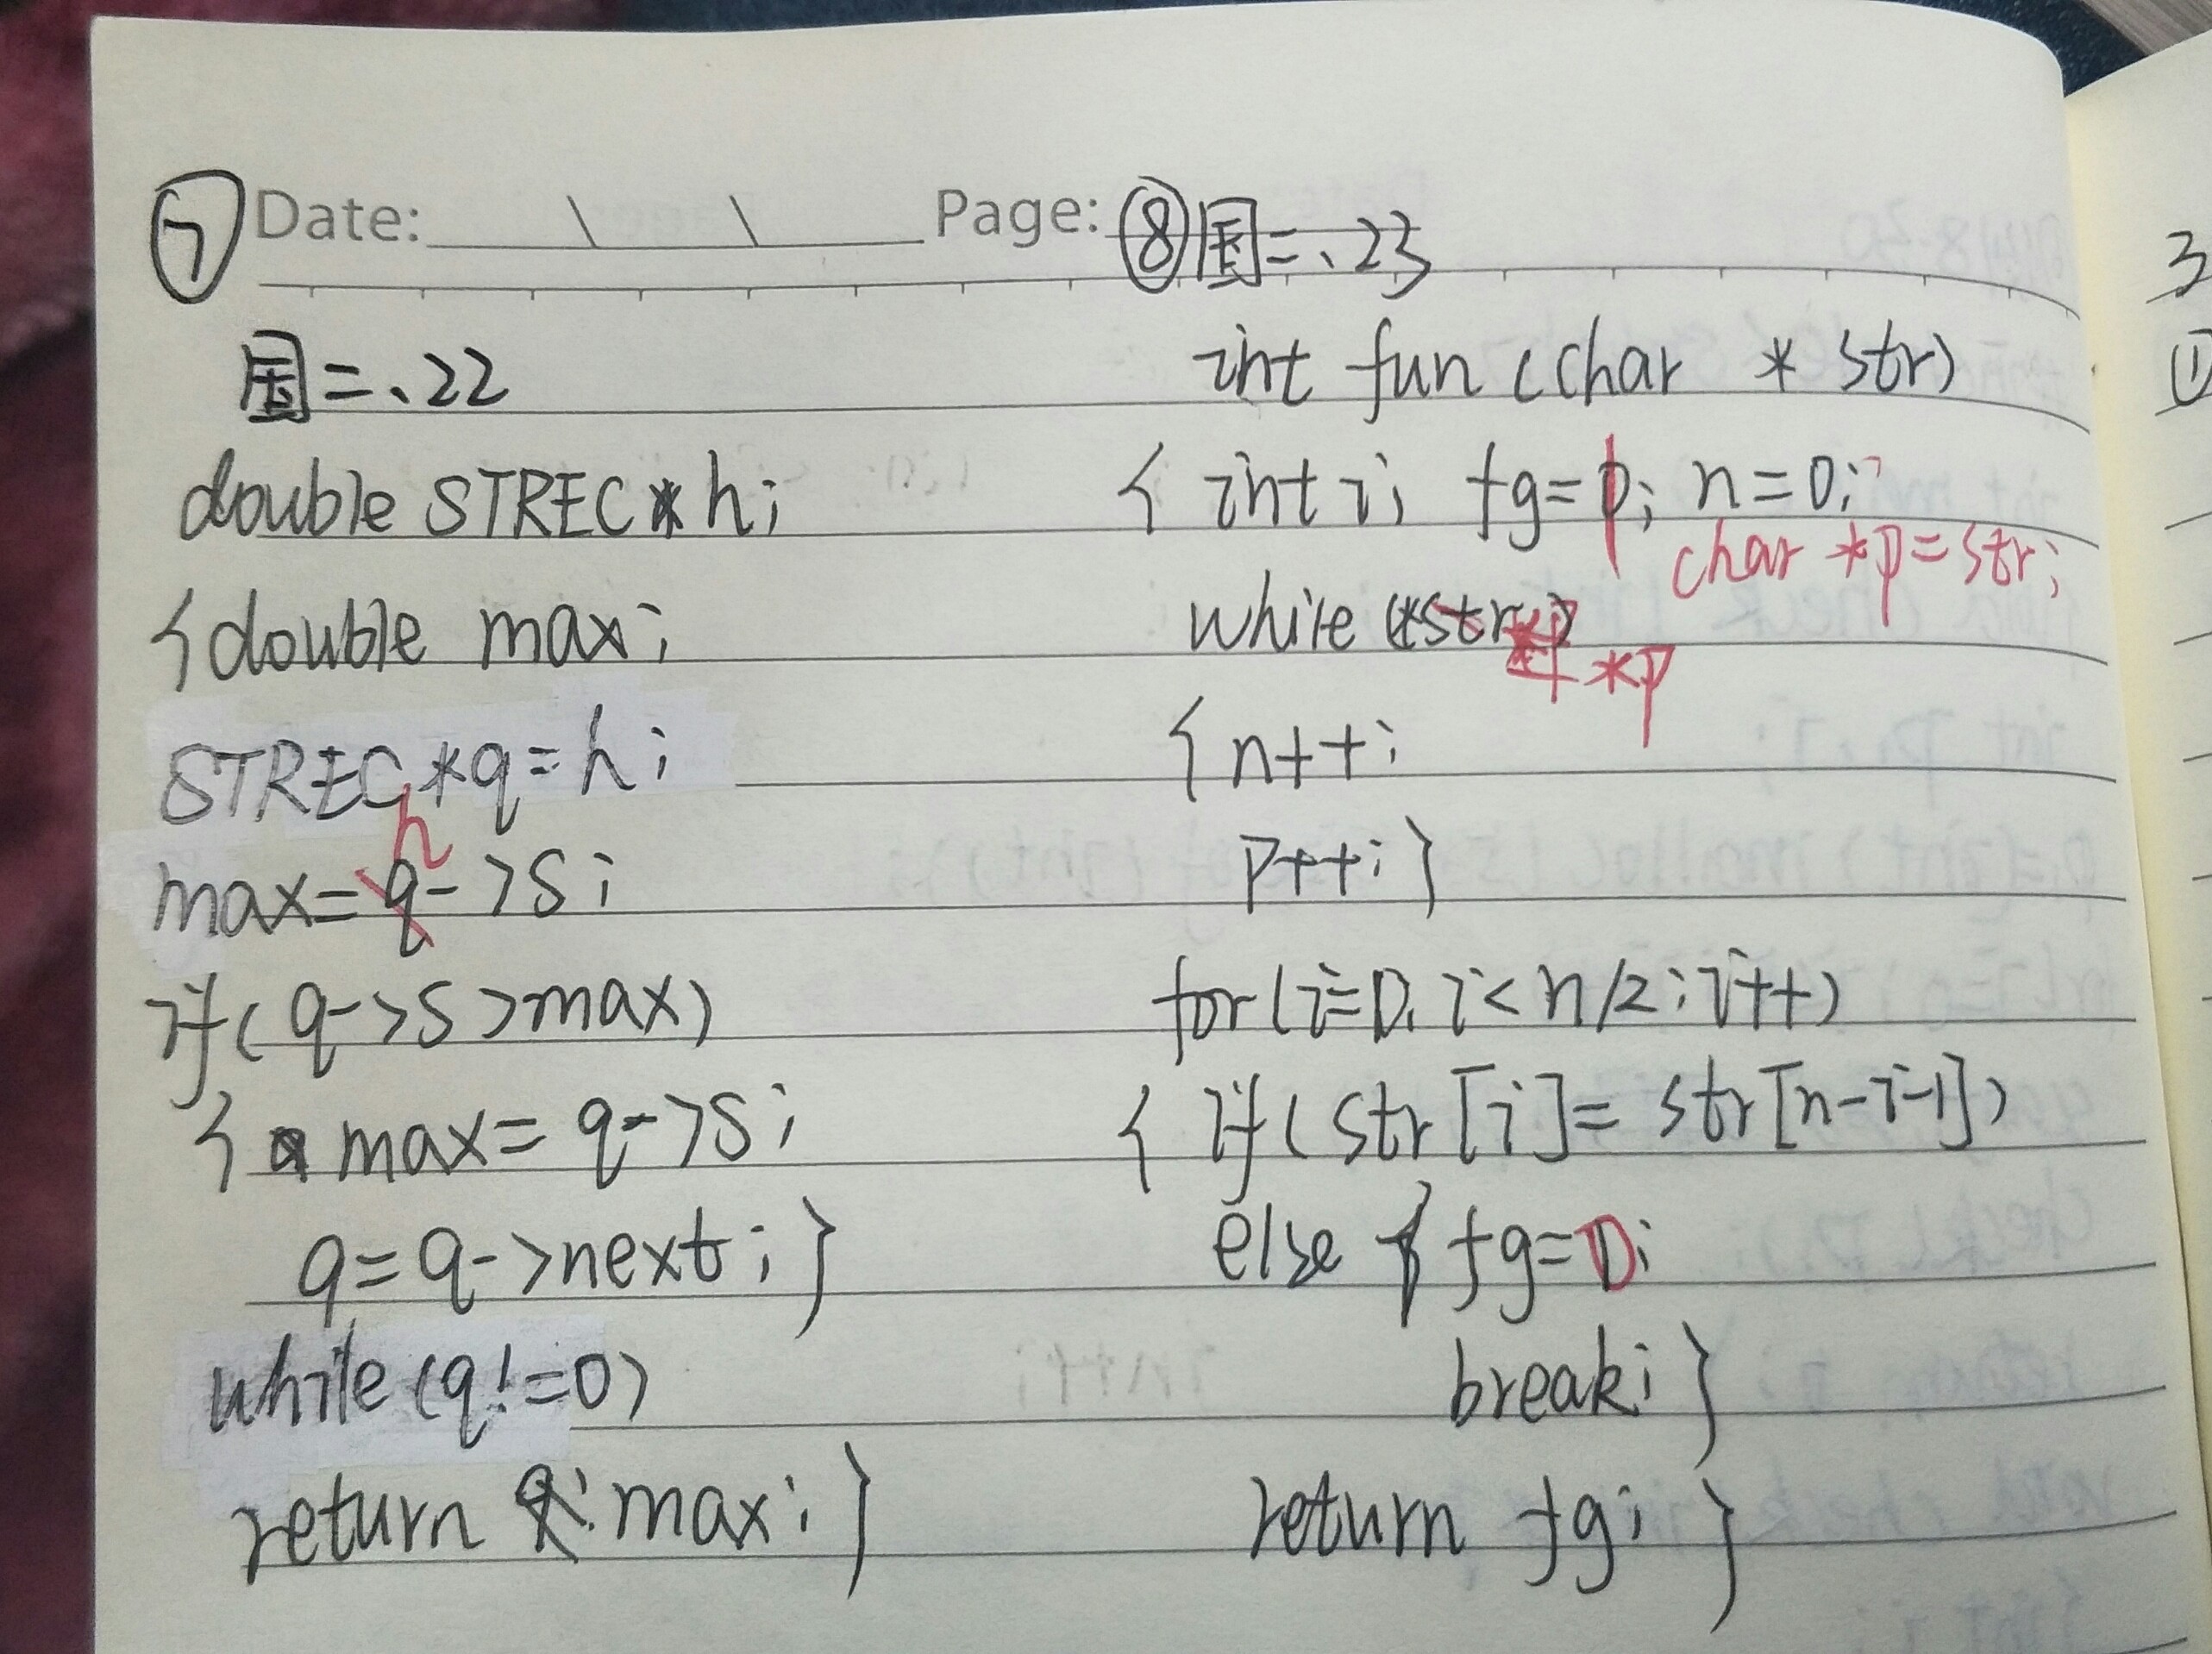 ⑦ Date: \ \ Page:
国二、22
double STREC*h;
{double max;
STREC*q=h;
h
max=q->s;
if(q->s>max)
{ max=q->s;
q=q->next;}
while(q!=0)
return max;}
⑧国二、23
int fun (char * str)
{ int i; fg=1; n=0;
char *p=str;
while (*str)
*p
{n++;
p++;}
for(i=0; i<n/2;i++)
{ if(str[i]= str[n-i-1])
else { fg=0;
break;}
return fg; }
3
①